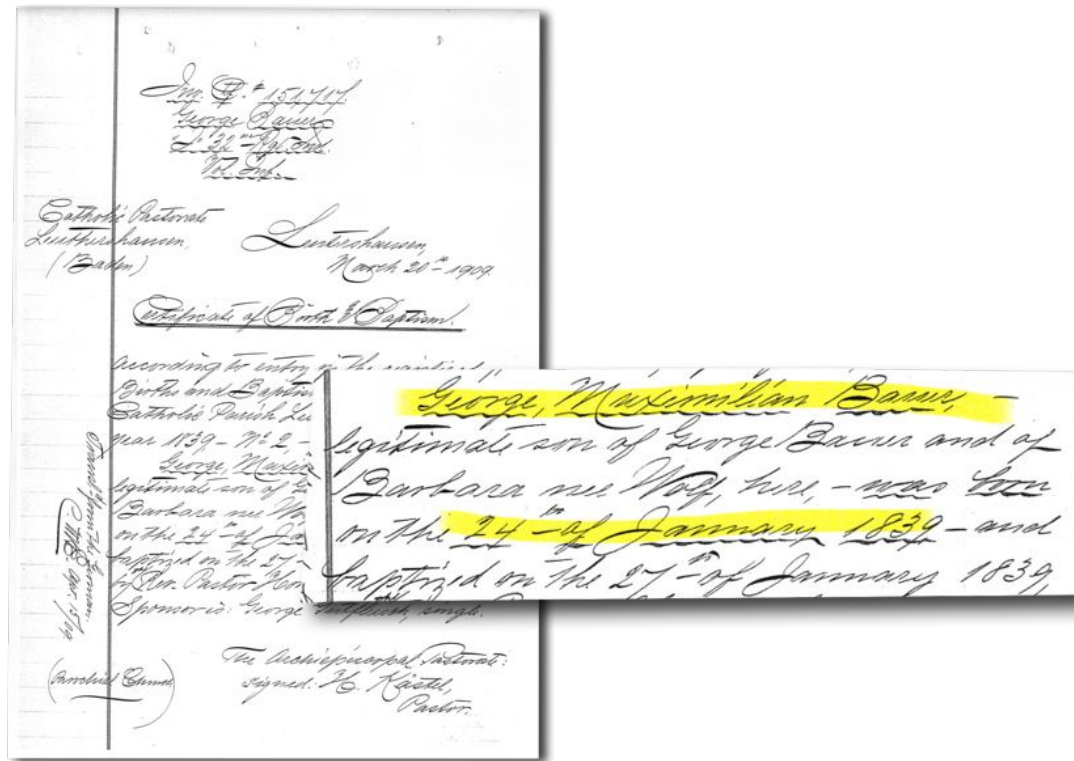 Inv. Ctf. # 151717.
George Bauer
"L" 32nd Rgt. Ind.
Vol. Inf.
Catholic Pastorate
Leuthershausen,
(Baden)
Leutershausen,
March 20th 1909.
Certificate of Birth & Baptism.
According to entry in the
Births and Baptis
Catholic Parish Leu
year 1839 - No 2, -
George, Maxim
legitimate son of G
Barbara nee Wo
on the 24th of Ja
baptized on the 27th
by Rev. Pastor
Sponsor is: George single.
The Archiepiscopal Pastorate:
signed: H. Kästel,
Pastor.
(Parochial Church)
Transl. from the German.
George, Maximilian Bauer, -
legitimate son of George Bauer and of
Barbara nee Wolf, here, - was born
on the 24th of January 1839 - and
baptized on the 27th of January 1839,